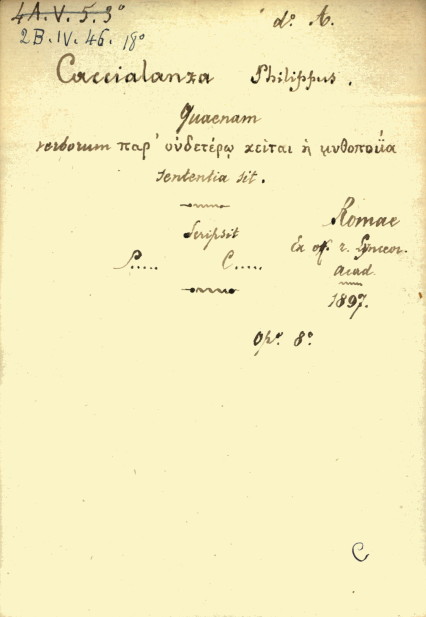 4A.V.5.3°
d° A.
2B.IV.46. 18°
Caccialanza Philippus.
Quaenam
verborum παρ' οὐδετέρῳ κεῖται ἡ μυθοποιΐα
sententia sit.
Scripsit
P..... C.....
Romae
Ex off. r. Lynceor.
Acad.
1897.
Op° 8°
C